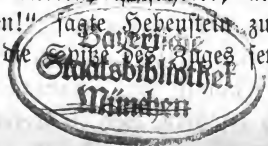 en!“ ſagte Hebenſtein zu
die Spitze des Zuges ſe
Bayeriſche
Staatsbibliothek
München